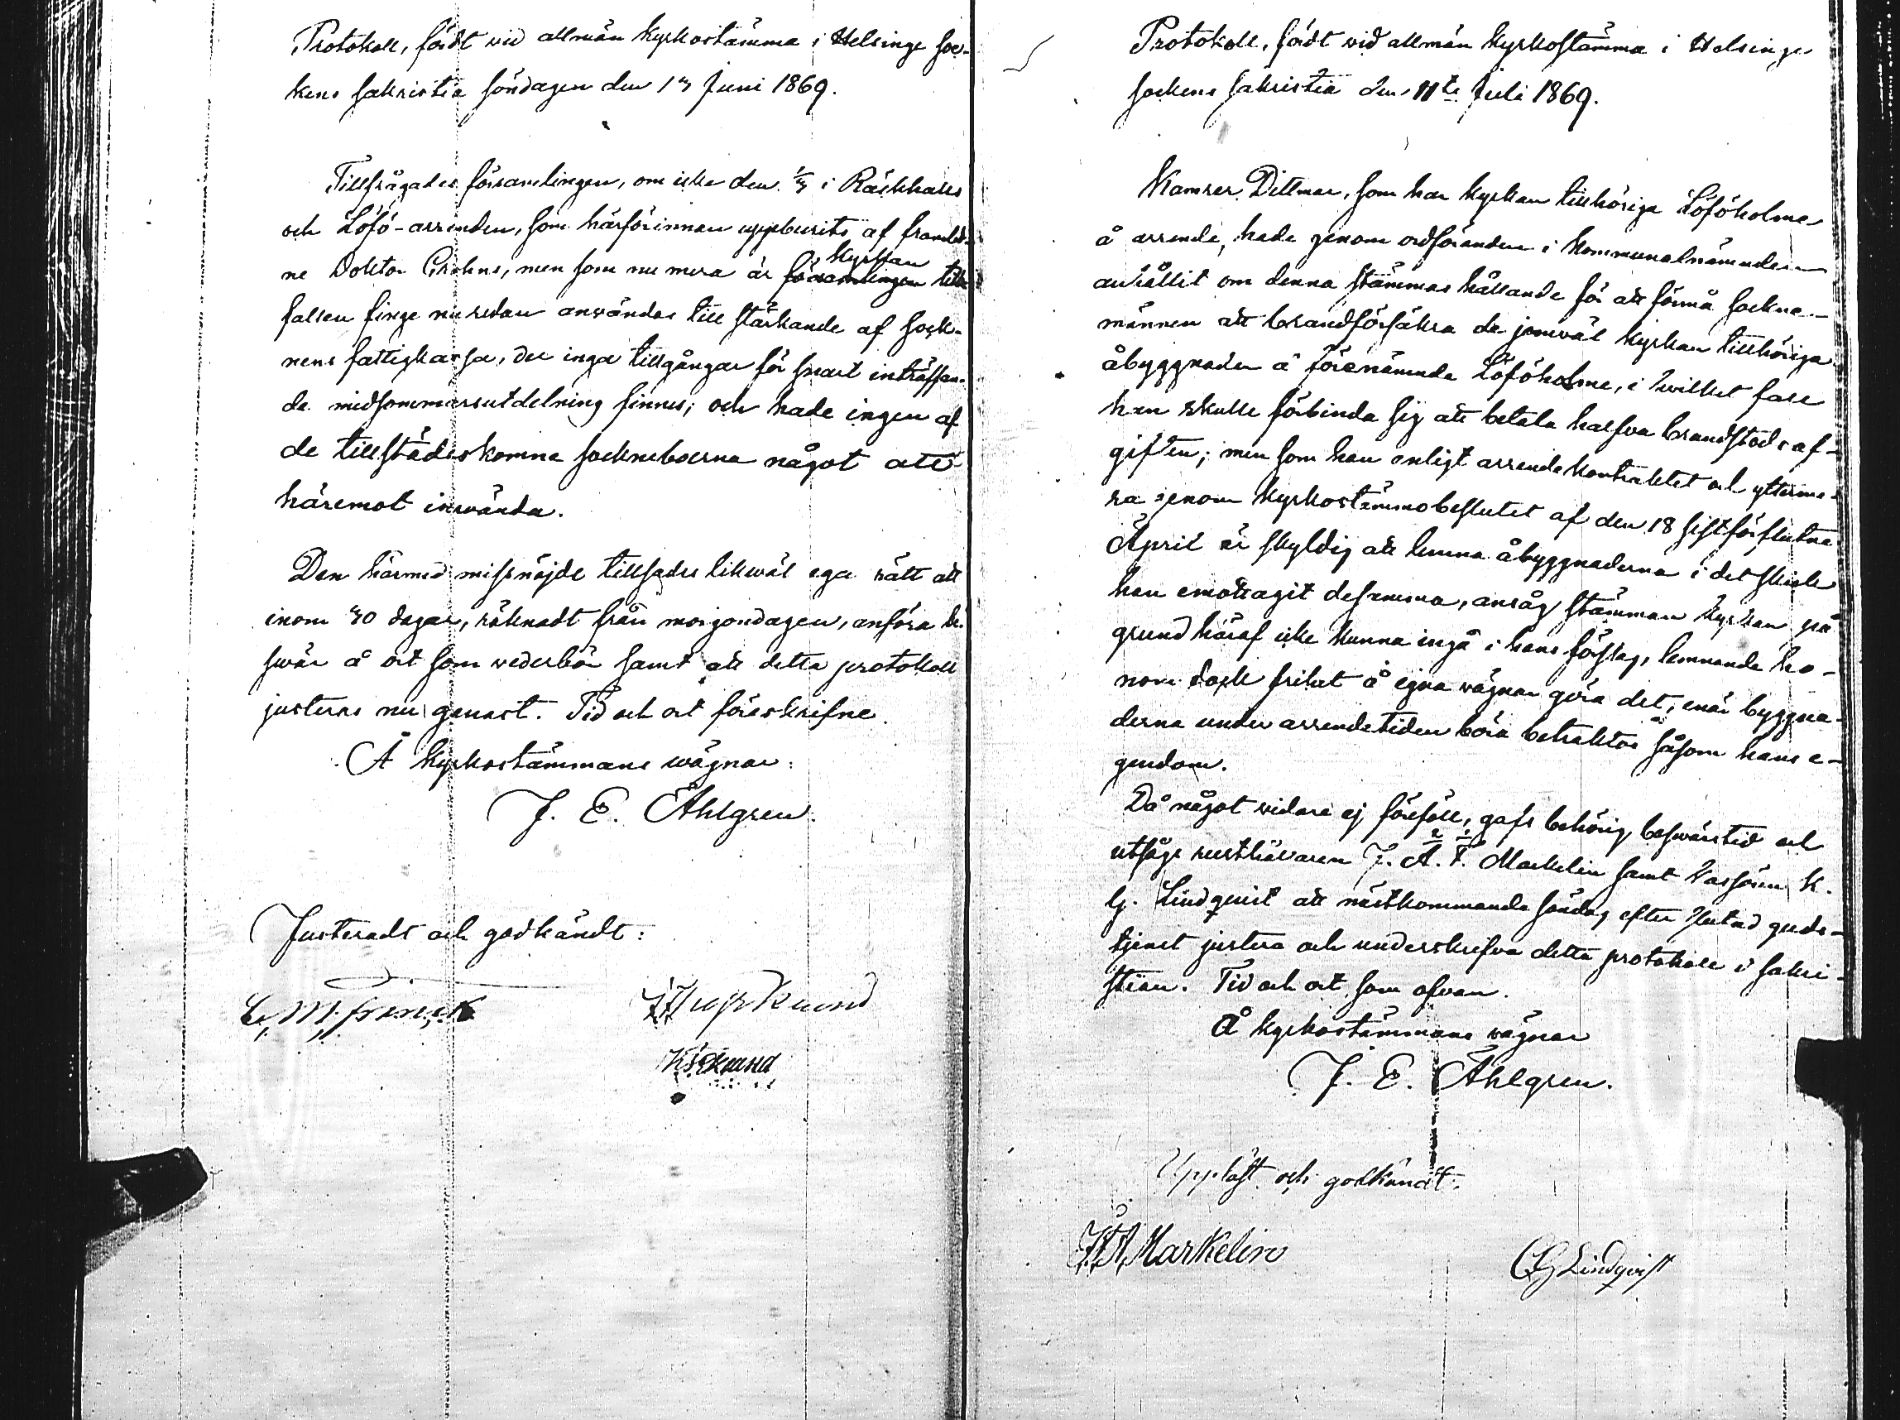 Protokoll, fördt vid allmän kyrkostämma i Helsinge soc-
kens sakristia söndagen den 13 Juni 1869.
Tillfrågades församlingen, om icke den 1/3 i Räckhals
och Löfö-arrenden, som härförinnan uppburits af framlid-
ne Doktor Crohns, men som nu mera är församlingen till-
kyrkan
fallen finge nu redan användas till stärkande af sock-
nens fattigkassa, der inga tillgångar för snart inträffan-
de midsommarsutdelning finnes; och hade ingen af
de tillstädeskomna sockneboerna något att
häremot invända.
Den härmed missnöjde tillsades likwäl ega rätt att
inom 30 dagar, räknadt från morgondagen, anföra be-
swär å ort som wederbör samt att detta protokoll
justeras nu genast. Tid och ort föreskrifne.
Å kyrkostämmans wägnar:
J. E. Åhlgren.
Justeradt och godkändt:
K Eklund
Protokoll, fördt vid allmän kyrkostämma i Helsinge
sockens sakristia den 11te Juli 1869.
Kamrer Dittmar, som har kyrkan tillhöriga Löföholme
å arrende, hade genom ordföranden i kommunalnämnden
anhållit om denna stämmas hållande för att förmå sockne-
männen att brandförsäkra de jemväl kyrkan tillhöriga
åbyggnader å förenämnde Löföholme, i hvilket fall
han skulle förbinda sig att betala halfva brandstodsaf-
giften; men som han enligt arrendekontraktet och ytterme-
ra genom kyrkostämmobeslutet af den 18 sistförflutne
April är skyldig att lemna åbyggnaderna i det skick
han emottagit desamma, ansåg stämman kyrkan på
grund häraf icke kunna ingå i hans förslag, lemnande ho-
nom dock frihet å egna wägnar göra det, enär byggna-
derna under arrendetiden böra betraktas såsom hans e-
gendom.
Då något vidare ej föreföll, gafs behörig beswärstid och
utsågs rusthållaren J. A. F. Markelin samt Kassören K.
G. Lindqvist att nästkommande söndag efter slutad guds-
tjenst justera och underskrifva detta protokoll i sakri-
stian. Tid och ort som ofvan.
Å kyrkostämmans wägnar
J. E. Åhlgren.
Uppläst och godkändt:
J A Markelin
C G Lindqvist